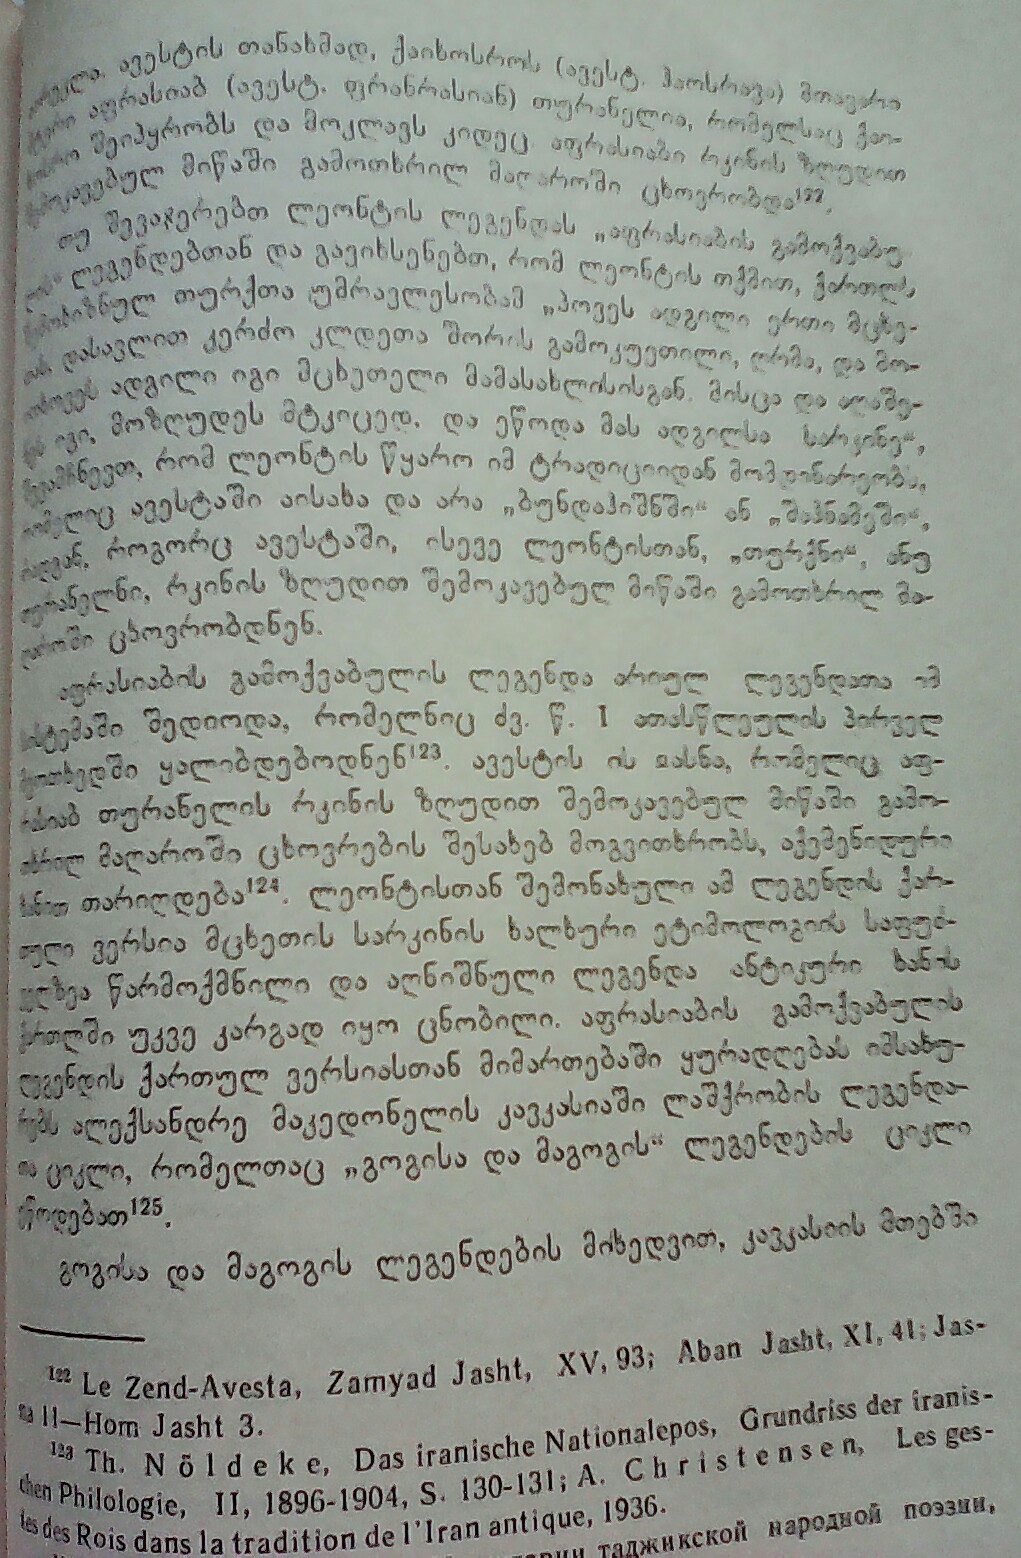 ავესტის თანახმად, ქაიხოსროს (ავესტ. ჰაოსრავა) მთავარი
აფრასიაბ (ავესტ. ფრანრასიან) თურანელია, რომელსაც ქაი-
შეიპყრობს და მოკლავს კიდეც. აფრასიაბი რკინის ზღუდით
შემოკავებულ მიწაში გამოთხრილ მაღაროში ცხოვრობდა¹²².
თუ შევაჯერებთ ლეონტის ლეგენდას „აფრასიაბის გამოქვაბუ-
ლის“ ლეგენდებთან და გავიხსენებთ, რომ ლეონტის თქმით, ქართლს
შემოხიზნულ თურქთა უმრავლესობამ „პოვეს ადგილი ერთი მცხე-
თას დასავლით კერძო კლდეთა შორის გამოკუეთილი, ღრმა, და მო-
ითხოვეს ადგილი იგი მცხეთელი მამასახლისისგან. მისცა და აღაშე-
ნეს იგი, მოზღუდეს მტკიცედ, და ეწოდა მას ადგილსა სარკინე“,
შევამჩნევთ, რომ ლეონტის წყარო იმ ტრადიციიდან მომდინარეობს,
რომელიც ავესტაში აისახა და არა „ბუნდაჰიშნში“ ან „შაჰნამეში“,
რადგან, როგორც ავესტაში, ისევე ლეონტისთან, „თურქნი“, ანუ
თურანელნი, რკინის ზღუდით შემოკავებულ მიწაში გამოთხრილ მა-
ღაროში ცხოვრობდნენ.
აფრასიაბის გამოქვაბულის ლეგენდა არიულ ლეგენდათა იმ
სისტემაში შედიოდა, რომელნიც ძვ. წ. I ათასწლეულის პირველ
მეოთხედში ყალიბდებოდნენ¹²³. ავესტის ის იასნა, რომელიც აფ-
რასიაბ თურანელის რკინის ზღუდით შემოკავებულ მიწაში გამო-
თხრილ მაღაროში ცხოვრების შესახებ მოგვითხრობს, აქემენიდური
ხანით თარიღდება¹²⁴. ლეონტისთან შემონახული ამ ლეგენდის ქარ-
თული ვერსია მცხეთის სარკინის ხალხური ეტიმოლოგიის საფუძ-
ველზეა წარმოქმნილი და აღნიშნული ლეგენდა ანტიკური ხანის
ქართლში უკვე კარგად იყო ცნობილი. აფრასიაბის გამოქვაბულის
ლეგენდის ქართულ ვერსიასთან მიმართებაში ყურადღებას იმსახუ-
რებს ალექსანდრე მაკედონელის კავკასიაში ლაშქრობის ლეგენდა-
თა ციკლი, რომელთაც „გოგისა და მაგოგის“ ლეგენდების ციკლი
ეწოდებათ¹²⁵.
გოგისა და მაგოგის ლეგენდების მიხედვით, კავკასიის მთებში
¹²² Le Zend-Avesta, Zamyad Jasht, XV, 93; Aban Jasht, XI, 41; Jas-
na II—Hom Jasht 3.
¹²³ Th. Nöldeke, Das iranische Nationalepos, Grundriss der iranis-
chen Philologie, II, 1896-1904, S. 130-131; A. Christensen, Les ges-
tes des Rois dans la tradition de l'Iran antique, 1936.
таджикской народной поэзии,